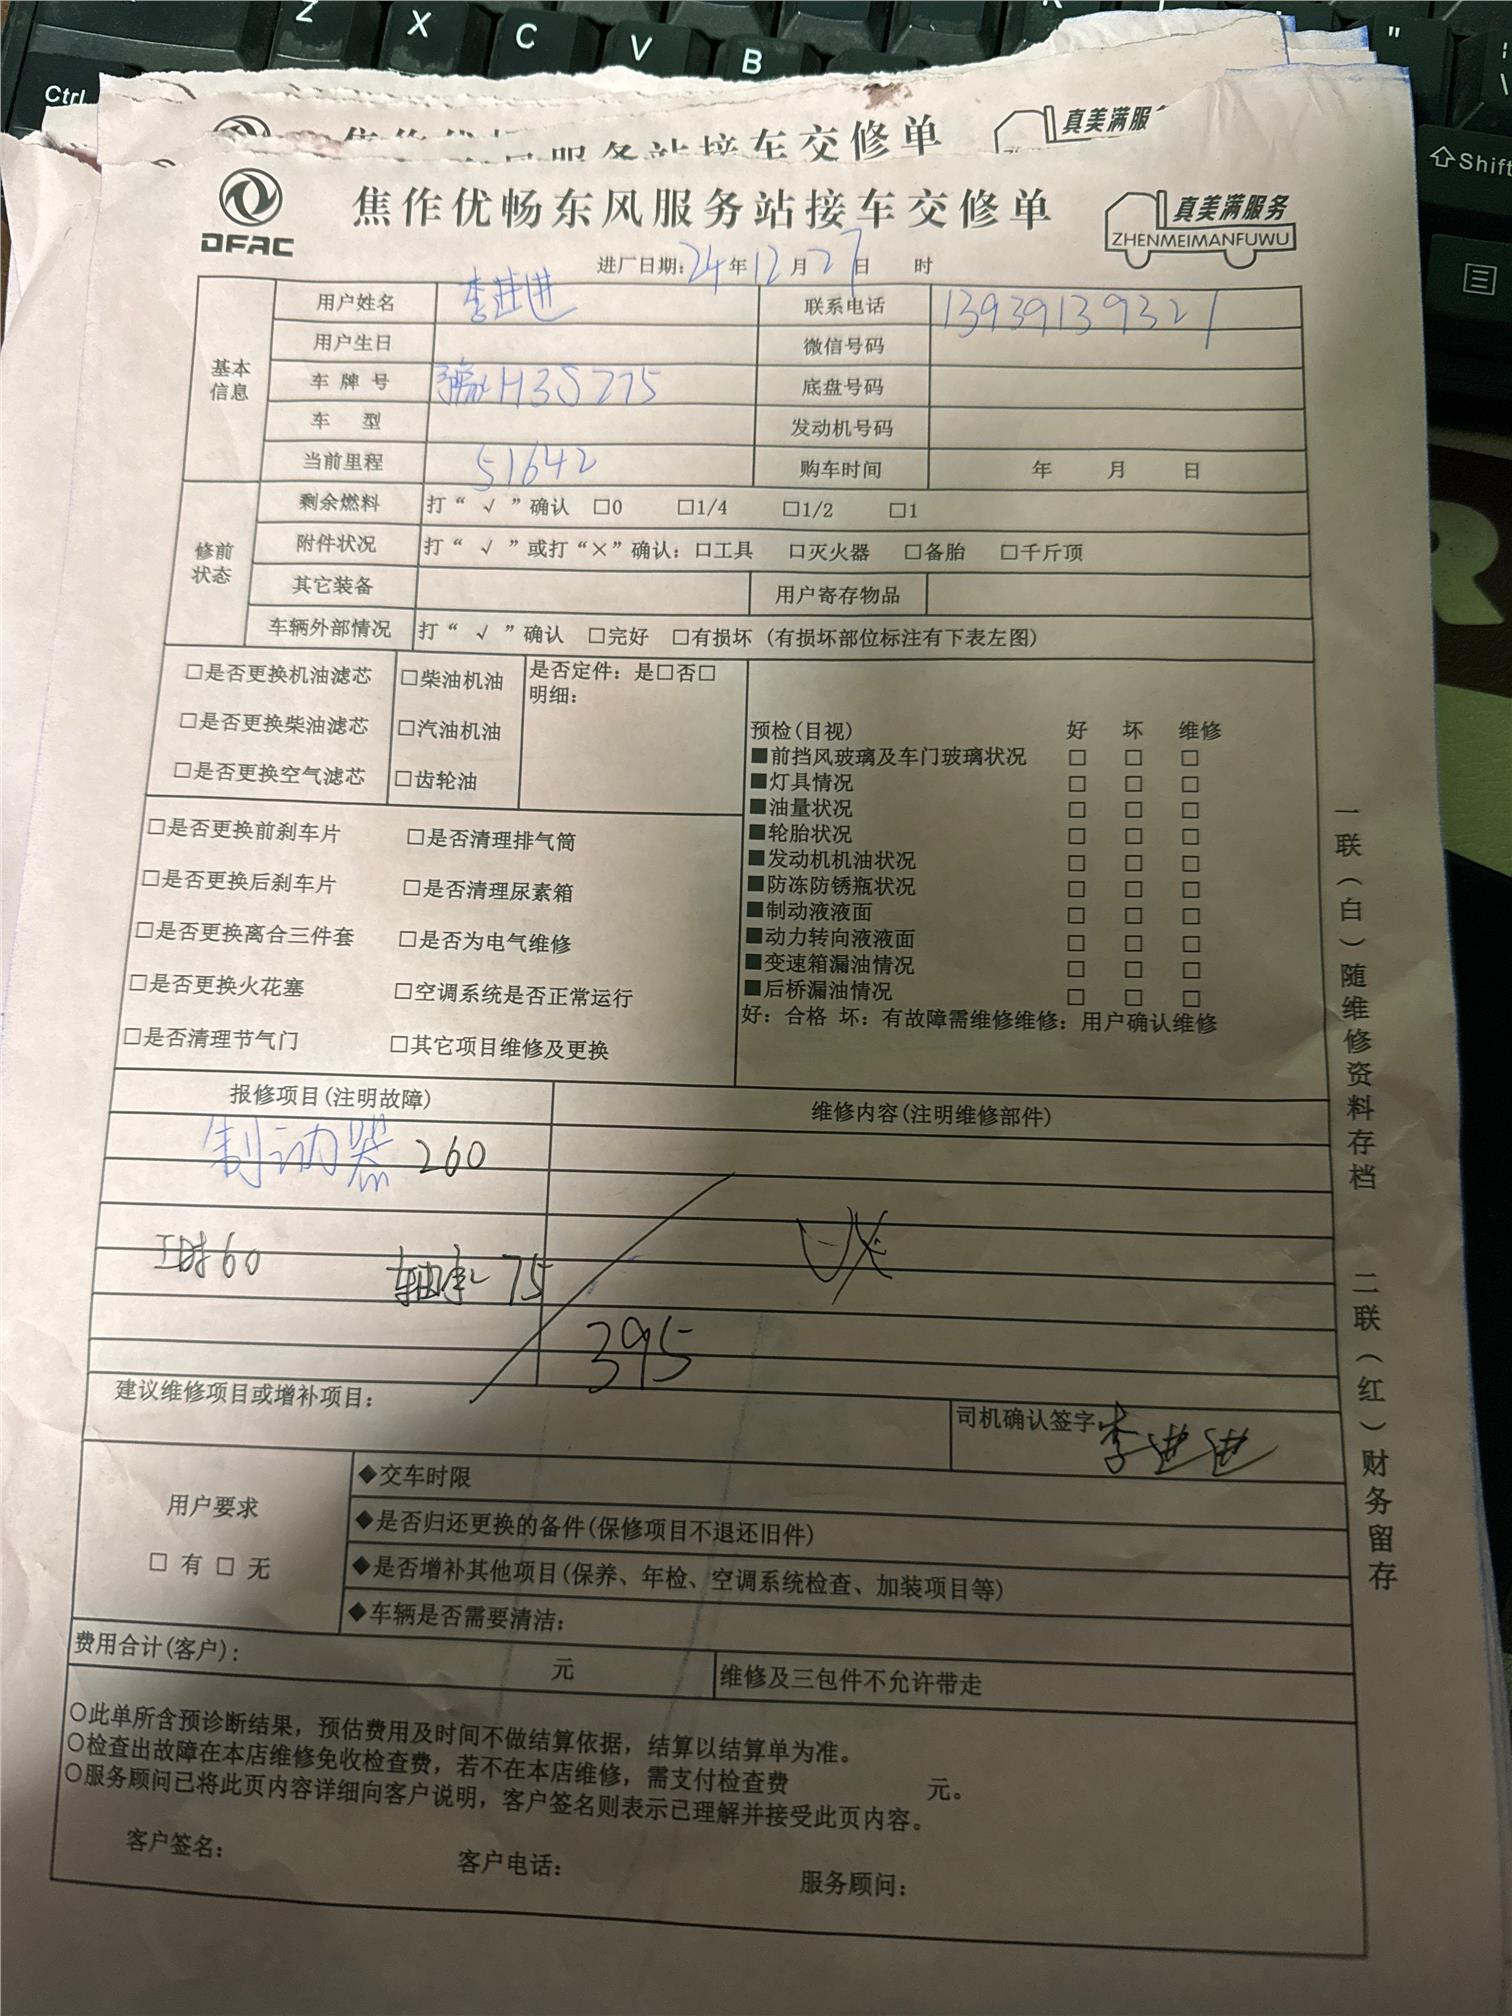 Z X C V B
Ctrl
Shift
接车交修单
真美满服
DFAC
焦作优畅东风服务站接车交修单
真美满服务
ZHENMEIMANFUWU
进厂日期:24年12月27日 时
基本信息
用户姓名 李进进 联系电话 13939139321
用户生日 微信号码
车牌号 豫H3S275 底盘号码
车 型 发动机号码
当前里程 51642 购车时间 年 月 日
修前状态
剩余燃料 打“√”确认 □0 □1/4 □1/2 □1
附件状况 打“√”或打“×”确认: □工具 □灭火器 □备胎 □千斤顶
其它装备 用户寄存物品
车辆外部情况 打“√”确认 □完好 □有损坏 (有损坏部位标注有下表左图)
□是否更换机油滤芯 □柴油机油 是否定件: 是□否□
明细:
□是否更换柴油滤芯 □汽油机油
□是否更换空气滤芯 □齿轮油
□是否更换前刹车片 □是否清理排气筒
□是否更换后刹车片 □是否清理尿素箱
□是否更换离合三件套 □是否为电气维修
□是否更换火花塞 □空调系统是否正常运行
□是否清理节气门 □其它项目维修及更换
预检(目视) 好 坏 维修
■前挡风玻璃及车门玻璃状况 □ □ □
■灯具情况 □ □ □
■油量状况 □ □ □
■轮胎状况 □ □ □
■发动机机油状况 □ □ □
■防冻防锈瓶状况 □ □ □
■制动液液面 □ □ □
■动力转向液液面 □ □ □
■变速箱漏油情况 □ □ □
■后桥漏油情况 □ □ □
好: 合格 坏: 有故障需维修维修: 用户确认维修
报修项目(注明故障) 维修内容(注明维修部件)
制动器 260
工时60 轴承 75
395
建议维修项目或增补项目:
司机确认签字 李进进
用户要求
□ 有 □ 无
◆交车时限
◆是否归还更换的备件(保修项目不退还旧件)
◆是否增补其他项目(保养、年检、空调系统检查、加装项目等)
◆车辆是否需要清洁:
费用合计(客户): 元 维修及三包件不允许带走
○此单所含预诊断结果，预估费用及时间不做结算依据，结算以结算单为准。
○检查出故障在本店维修免收检查费，若不在本店维修，需支付检查费 元。
○服务顾问已将此页内容详细向客户说明，客户签名则表示已理解并接受此页内容。
客户签名: 客户电话: 服务顾问:
一联(白)随维修资料存档 二联(红)财务留存